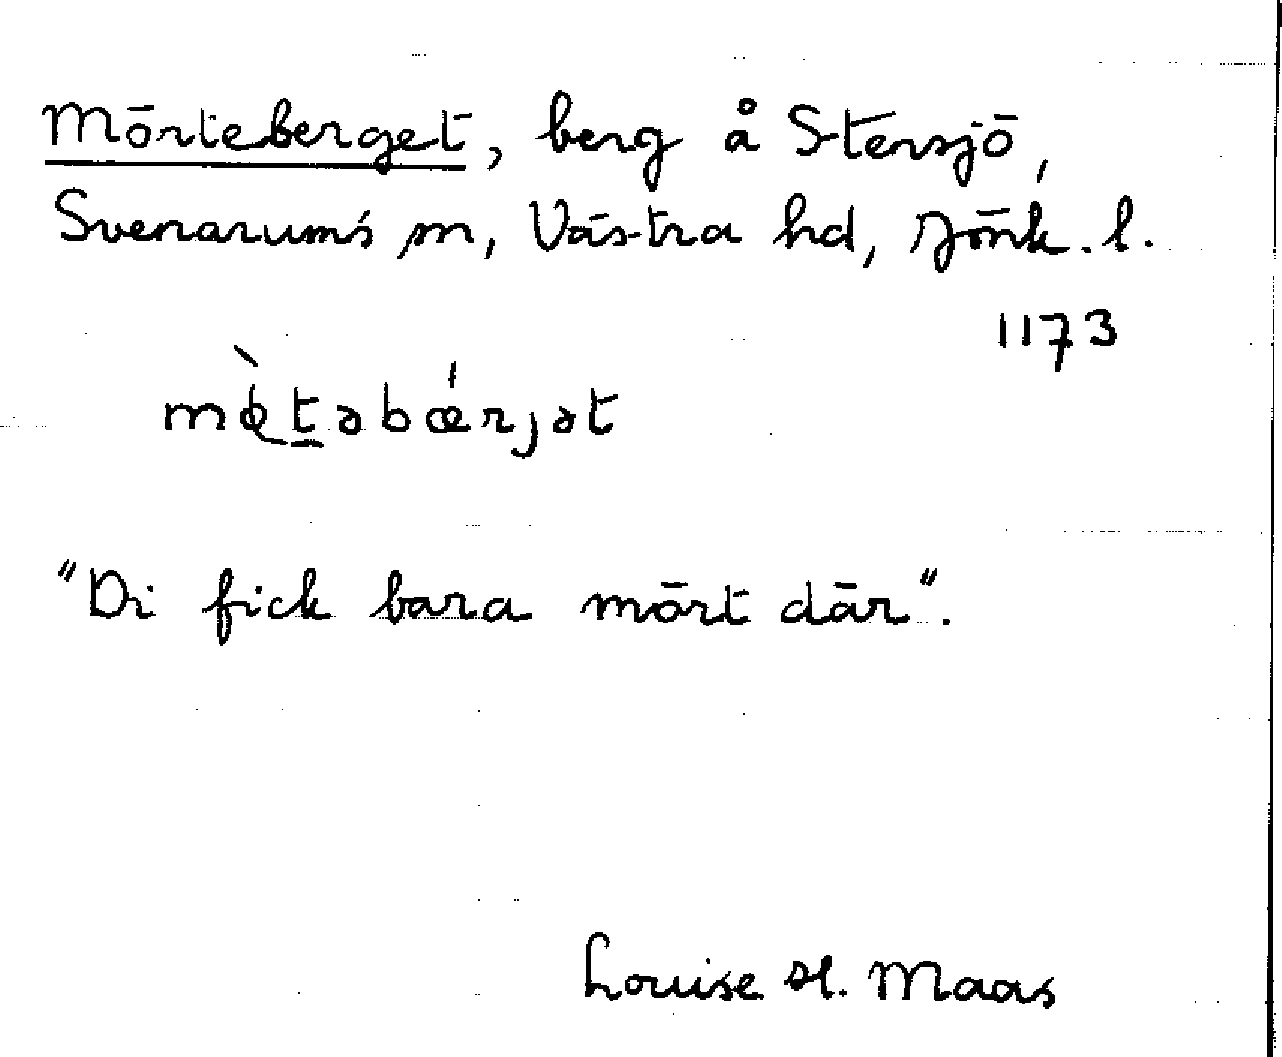 Mörteberget, berg å Stensjö,
Svenarums sn, Västra hd, Jönk. l.
1173
"Di fick bara mört där".
Louise H. Maas